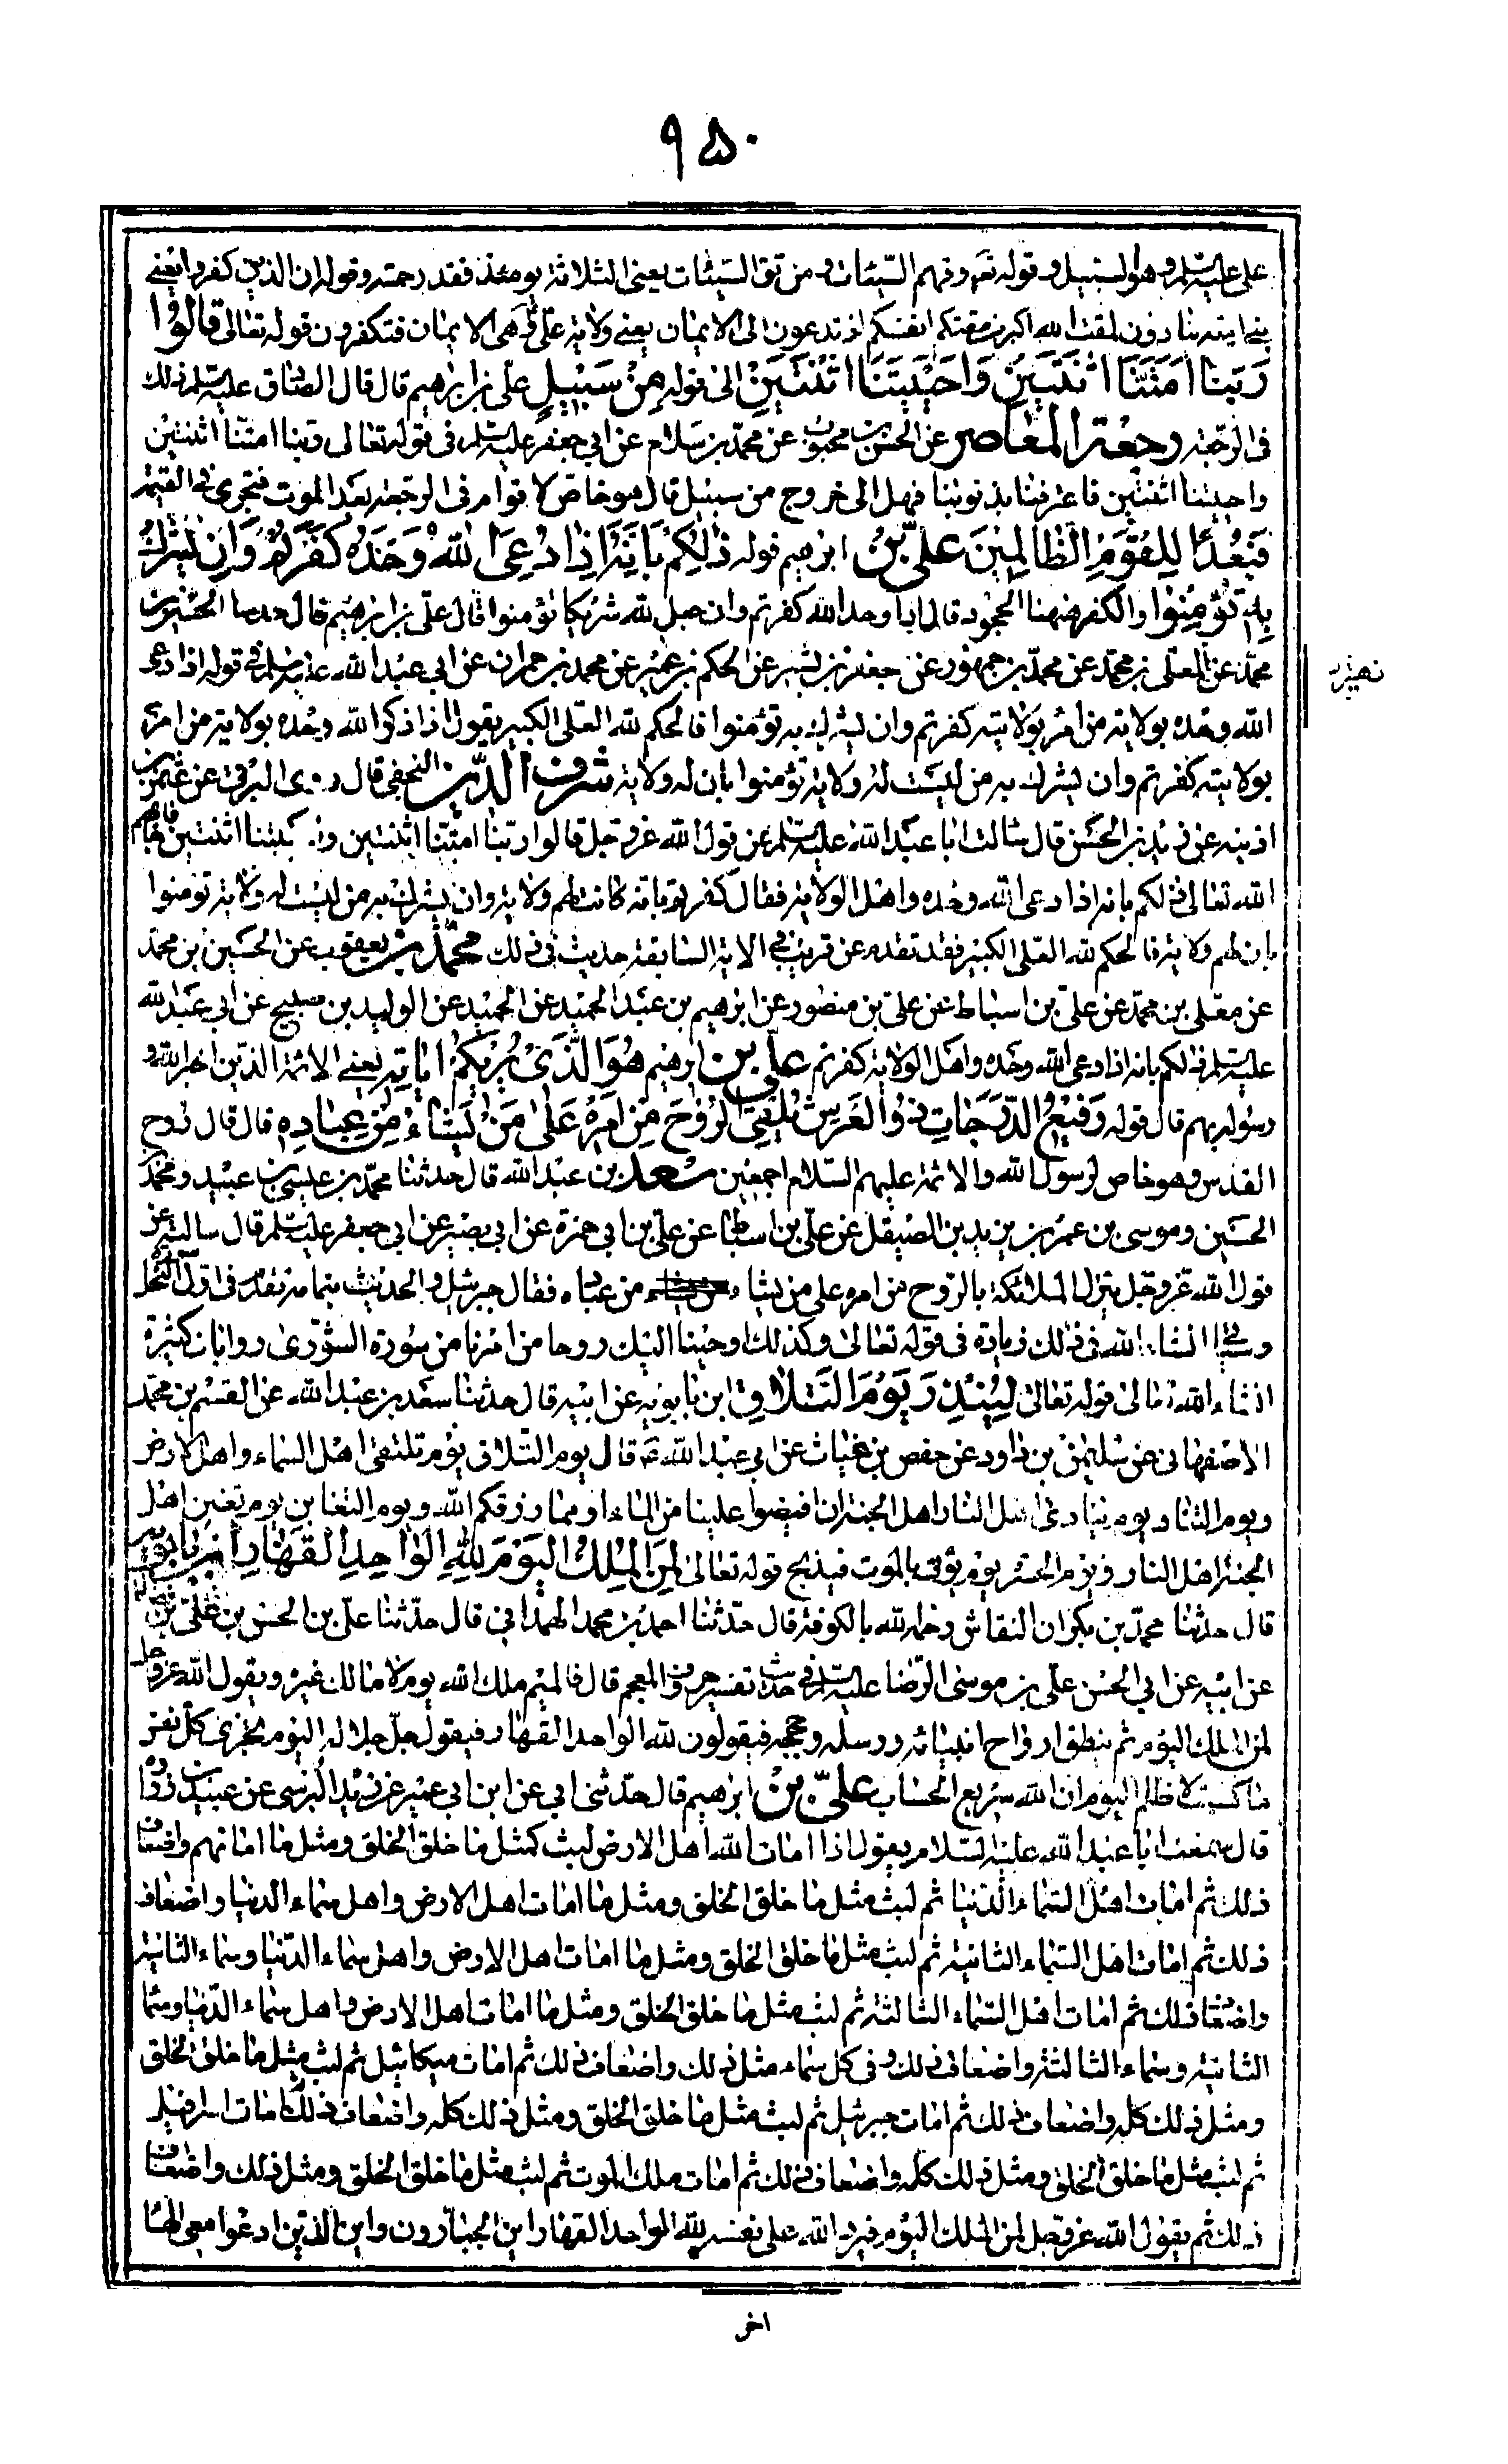 ٩٥٠
على عليه السلم وهو السبيل وقوله تعم وقهم السيئات ومن تق السيئات يعني الثلاثة يومئذ فقد رحمته وقوله ان الذين كفروا يعني
بني امية ينادون لمقت الله اكبر من مقتكم انفسكم اذ تدعون الى الايمان يعني ولاية على ع هى الايمان فتكفرون قوله تعالى قالوا
ربنا امتنا اثنتين واحييتنا اثنتين الى قوله من سبيل على بن ابرهيم قال قال الصادق عليه السلم ذلك
فى الرجعة رجعة المعاصر عن الحسن بن محبوب عن محمد بن سلام عن ابي جعفر عليه السلم فى قوله تعالى ربنا امتنا اثنتين
واحييتنا اثنتين فاعترفنا بذنوبنا فهل الى خروج من سبيل قال هو خاص لاقوام فى الرجعة بعد الموت فتجرى فى القيمة
فبعدا للقوم الظالمين على بن ابرهيم قوله ذلكم بانه اذا دعى الله وحده كفرتم وان يشرك
به تؤمنوا والكفر ههنا الجحود قال اذا وحد الله كفرتم وان جعل لله شريكا تؤمنوا قال على بن ابرهيم قال حدثنا الحسين بن
محمد عن المعلى بن محمد عن محمد بن جمهور عن جعفر بن بشير عن الحكم بن عمير عن محمد بن حمران عن ابي عبد الله عليه السلم فى قوله اذا دعى
الله وحده بولاية من امر بولايته كفرتم وان يشرك به تؤمنوا فالحكم لله العلى الكبير يقول اذا ذكر الله وحده بولاية من امر
بولايته كفرتم وان يشرك به من ليست له ولاية تؤمنوا بان له ولاية شرف الدين النجفى قال روى البرقى عن عثمن بن
اذينه عن زيد بن الحسن قال سالت ابا عبد الله عليه السلم عن قول الله عز وجل قالوا ربنا امتنا اثنتين واحييتنا اثنتين فاجابهم
الله تعالى ذلكم بانه اذا دعى الله وحده واهل الولاية فقال كفرتم بانه كانت لهم ولاية وان يشرك به من ليست له ولاية تؤمنوا
بان لهم ولاية فالحكم لله العلى الكبير فقد تقدم عن قريب في الاية السابقة حديث فى ذلك محمد بن يعقوب عن الحسين بن محمد
عن معلى بن محمد عن على بن اسباط عن على بن منصور عن ابرهيم بن عبد الحميد عن الوليد بن صبيح عن ابي عبد الله
عليه السلم ذلكم بانه اذا دعى الله وحده واهل الولاية كفرتم على بن ابرهيم هو الذى يريكم اياته يعني الائمة الذين اخبر الله و
رسوله بهم قال قوله رفيع الدرجات ذو العرش يلقى الروح من امره على من يشاء من عباده قال قال روح
القدس وهو خاص لرسول الله والائمة عليهم السلام اجمعين سعد بن عبد الله قال حدثنا محمد بن عيسى بن عبيد ومحمد
الحسين وموسى بن عمر بن يزيد بن الصيقل عن على بن اسباط عن على بن ابي حمزة عن ابي بصير عن ابي جعفر عليه السلم قال سالته عن
قول الله عز وجل ينزل الملائكة بالروح من امره على من يشاء من عباده فقال جبرئيل والحديث بتمامه تقدم فى اول النحل
وسيأتي انشاء الله فى ذلك زيادة فى قوله تعالى وكذلك اوحينا اليك روحا من امرنا من سورة الشورى روايات كثيرة
انشاء الله تعالى قوله تعالى لينذر يوم التلاق ابن بابويه عن ابيه قال حدثنا سعد بن عبد الله عن القسم بن محمد
الاصفهانى عن سليمن بن داود عن حفص بن غياث عن ابي عبد الله ع قال يوم التلاق يوم تلتقى اهل السماء واهل الارض
ويوم التناد يوم ينادى اهل النار اهل الجنة ان افيضوا علينا من الماء او مما رزقكم الله ويوم التغابن يوم تغبن اهل
الجنة اهل النار ويوم الحسرة يوم يؤتى بالموت فيذبح قوله تعالى لمن الملك اليوم لله الواحد القهار ابن بابويه
قال حدثنا محمد بن بكران النقاش رحمه الله بالكوفة قال حدثنا احمد بن محمد الهمدانى قال حدثنا على بن الحسن بن على بن
عن ابيه عن ابي الحسن على بن موسى الرضا عليه السلم في حديث تفسير حروف المعجم قال فالميم ملك الله يوم لا مالك غيره ويقول الله عز وجل
لمن الملك اليوم ثم ينطق ارواح انبيائه ورسله وحججه فيقولون لله الواحد القهار فيقول جل جلاله اليوم تجزى كل نفس
ما كسبت لا ظلم اليوم ان الله سريع الحساب على بن ابرهيم قال حدثنى ابي عن ابن ابي عمير عن زيد النرسى عن عبيد بن زرارة
قال سمعت ابا عبد الله عليه السلام يقول اذا امات الله اهل الارض لبث كمثل ما خلق الخلق ومثل ما اماتهم واضعاف
ذلك ثم امات اهل السماء الدنيا ثم لبث مثل ما خلق الخلق ومثل ما امات اهل الارض واهل سماء الدنيا واضعاف
ذلك ثم امات اهل السماء الثانية ثم لبث مثل ما خلق الخلق ومثل ما امات اهل الارض واهل سماء الدنيا وسماء الثانية
واضعاف ذلك ثم امات اهل السماء الثالثة ثم لبث مثل ما خلق الخلق ومثل ما امات اهل الارض واهل سماء الدنيا وسماء
الثانية وسماء الثالثة واضعاف ذلك وفى كل سماء مثل ذلك واضعاف ذلك ثم امات ميكائيل ثم لبث مثل ما خلق الخلق
ومثل ذلك كله واضعاف ذلك ثم امات جبرئيل ثم لبث مثل ما خلق الخلق ومثل ذلك كله واضعاف ذلك ثم امات اسرافيل
ثم لبث مثل ما خلق الخلق ومثل ذلك كله واضعاف ذلك ثم امات ملك الموت ثم لبث مثل ما خلق الخلق ومثل ذلك واضعاف
ذلك ثم يقول الله عز وجل لمن الملك اليوم فيرد الله على نفسه لله الواحد القهار اين الجبارون واين الذين ادعوا معى الها
اخر